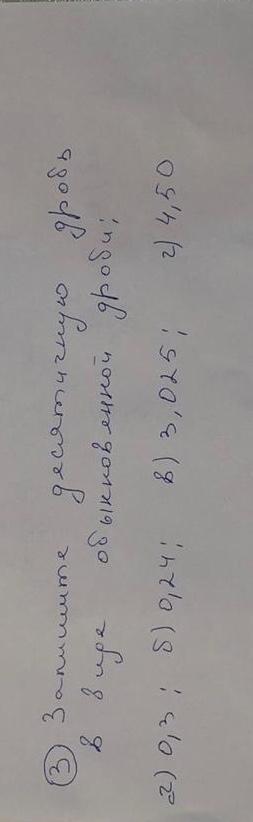 ③ Запишите десятичную дробь
в виде обыкновенной дроби;
а) 0,3; б) 0,24; в) 3,025; г) 4,50